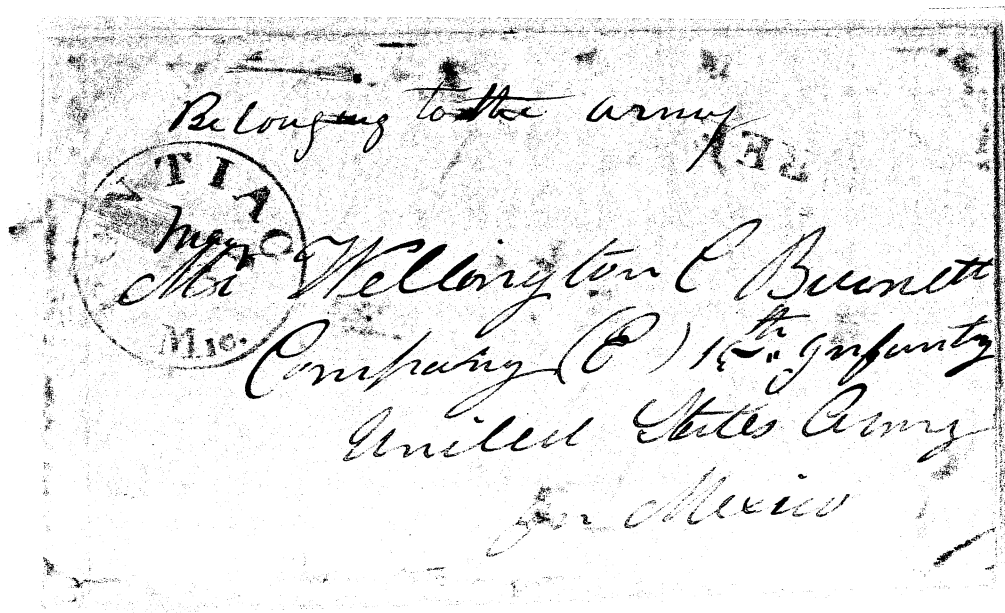 Belonging to the army
FREE
PONTIAC
May
Mic.
Mr Wellington C Burnett
Company (E) 15th. Infantry
United States Army
in Mexico